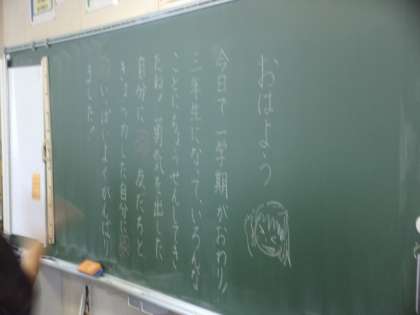 おはよう
今日で一学期がおわり!
三年生になって、いろんな
ことにちょうせんしてき
たね。勇気を出した
自分に 友だちと
きょうカした自分に
いっぱいよくがんばり
ました!